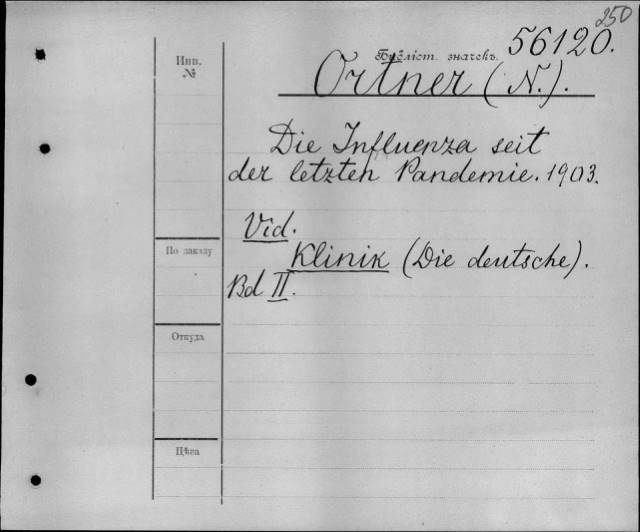 250
Инв.
№
Библіот. значекъ. 56120.
Ortner (N.).
Die Influenza seit
der letzten Pandemie. 1903.
Vid.
Klinik (Die deutsche).
Bd II.
По заказу
Откуда
Цѣна